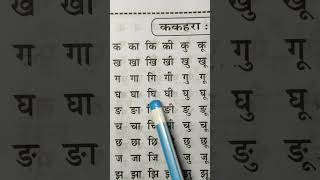 ककहरा :
क का कि की कु कू
ख खा खि खी खु खू
ग गा गि गी गु गू
घ घा घि घी घु घू
ङ ङा ङी ङु ङू
च चा ची चु चू
छ छा छी छु छू
ज जा जि जी जु जू
झ झा झि झी झु झू